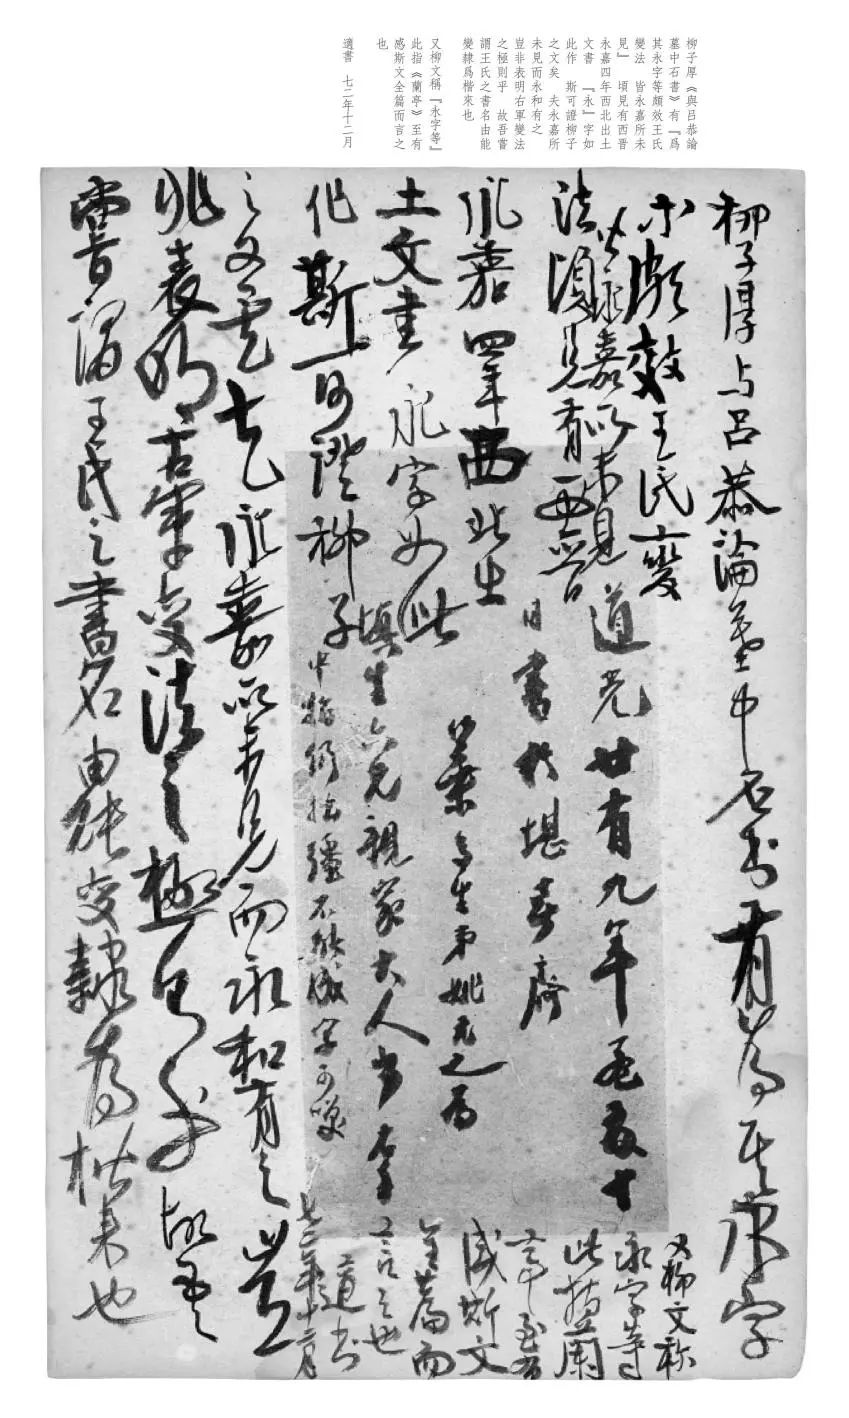 柳子厚《與呂恭論
墓中石書》有『爲
其永字等頗效王氏
變法 皆永嘉所未
見』 頃見有西晋
永嘉四年西北出土
文書 『永』字如
此作 斯可證柳子
之文矣 夫永嘉所
未見而永和有之
豈非表明右軍變法
之極則乎 故吾嘗
謂王氏之書名由能
變隸爲楷來也
又柳文稱『永字等』
此指《蘭亭》至有
感斯文全篇而言之
也
適書 七二年十二月
柳子厚与呂恭論墓中石书有为其永字
等頗效王氏變
皆永嘉所未見
法頃見有西晋
永嘉四年西北出
土文書永字如此
作斯可證柳子
之文矣夫永嘉所未見而永和有之豈
非表明右軍变法之極則乎故吾
嘗謂王氏之書名由能变隸为楷来也
道光廿有九年孟夏十
日書於堪喜齋
葉生弟姚元之為
慎生六兄親家大人書季
中指仍拈彊不能成字可嘆
又柳文称
永字等
此指蘭
亭至有
感斯文
全篇而
言之也
適书
七二年十二月